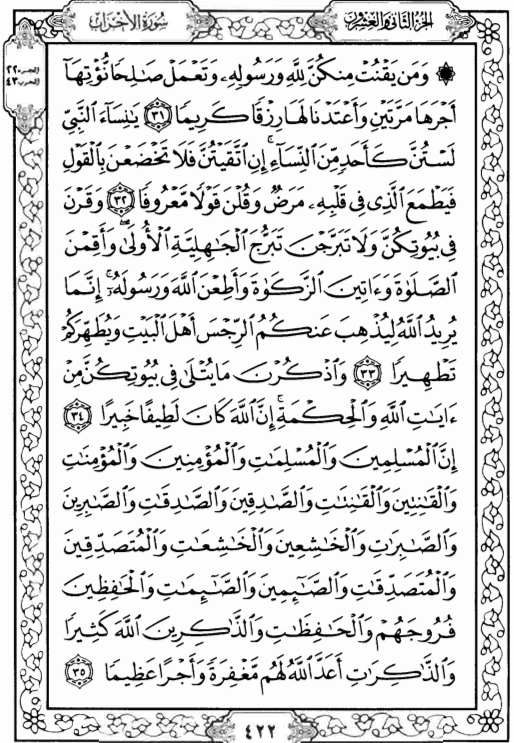 الجزء الثاني والعشرون
سورة الأحزاب
الجزء ٢٢
الحزب ٤٣
۞ وَمَن يَقْنُتْ مِنكُنَّ لِلَّهِ وَرَسُولِهِۦ وَتَعْمَلْ صَٰلِحًا نُّؤْتِهَآ
أَجْرَهَا مَرَّتَيْنِ وَأَعْتَدْنَا لَهَا رِزْقًا كَرِيمًا ٣١ يَٰنِسَآءَ ٱلنَّبِىِّ
لَسْتُنَّ كَأَحَدٍ مِّنَ ٱلنِّسَآءِ ۚ إِنِ ٱتَّقَيْتُنَّ فَلَا تَخْضَعْنَ بِٱلْقَوْلِ
فَيَطْمَعَ ٱلَّذِى فِى قَلْبِهِۦ مَرَضٌ وَقُلْنَ قَوْلًا مَّعْرُوفًا ٣٢ وَقَرْنَ
فِى بُيُوتِكُنَّ وَلَا تَبَرَّجْنَ تَبَرُّجَ ٱلْجَٰهِلِيَّةِ ٱلْأُولَىٰ ۖ وَأَقِمْنَ
ٱلصَّلَوٰةَ وَءَاتِينَ ٱلزَّكَوٰةَ وَأَطِعْنَ ٱللَّهَ وَرَسُولَهُۥٓ ۚ إِنَّمَا
يُرِيدُ ٱللَّهُ لِيُذْهِبَ عَنكُمُ ٱلرِّجْسَ أَهْلَ ٱلْبَيْتِ وَيُطَهِّرَكُمْ
تَطْهِيرًا ٣٣ وَٱذْكُرْنَ مَا يُتْلَىٰ فِى بُيُوتِكُنَّ مِنْ
ءَايَٰتِ ٱللَّهِ وَٱلْحِكْمَةِ ۚ إِنَّ ٱللَّهَ كَانَ لَطِيفًا خَبِيرًا ٣٤
إِنَّ ٱلْمُسْلِمِينَ وَٱلْمُسْلِمَٰتِ وَٱلْمُؤْمِنِينَ وَٱلْمُؤْمِنَٰتِ
وَٱلْقَٰنِتِينَ وَٱلْقَٰنِتَٰتِ وَٱلصَّٰدِقِينَ وَٱلصَّٰدِقَٰتِ وَٱلصَّٰبِرِينَ
وَٱلصَّٰبِرَٰتِ وَٱلْخَٰشِعِينَ وَٱلْخَٰشِعَٰتِ وَٱلْمُتَصَدِّقِينَ
وَٱلْمُتَصَدِّقَٰتِ وَٱلصَّٰٓئِمِينَ وَٱلصَّٰٓئِمَٰتِ وَٱلْحَٰفِظِينَ
فُرُوجَهُمْ وَٱلْحَٰفِظَٰتِ وَٱلذَّٰكِرِينَ ٱللَّهَ كَثِيرًا
وَٱلذَّٰكِرَٰتِ أَعَدَّ ٱللَّهُ لَهُم مَّغْفِرَةً وَأَجْرًا عَظِيمًا ٣٥
٤٢٢